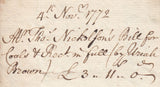 4th Novr. 1772
Thos. Nickolson's Bill for
Coals & Rect. in full (by Uriah
Brown) £ 3=11=0